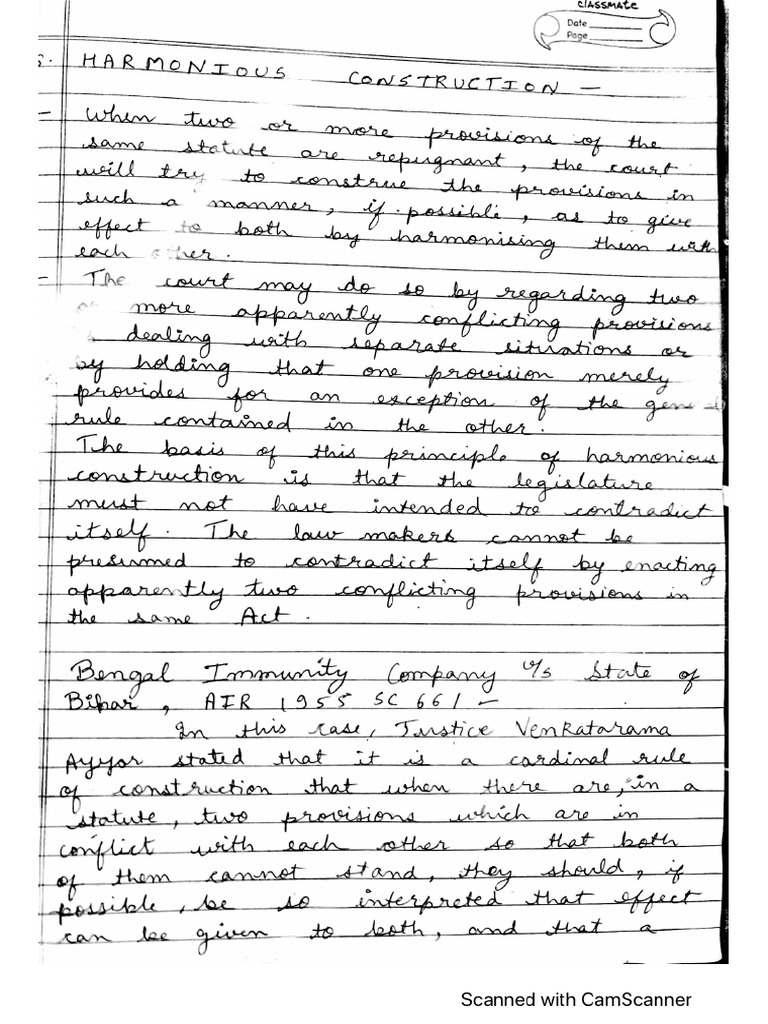 classmate
Date
Page
5. HARMONIOUS CONSTRUCTION –
– When two or more provisions of the
same statute are repugnant, the court
will try to construe the provisions in
such a manner, if possible, as to give
effect to both by harmonising them with
each other.
– The court may do so by regarding two
or more apparently conflicting provisions
dealing with separate situations or
by holding that one provision merely
provides for an exception of the general
rule contained in the other.
The basis of this principle of harmonious
construction is that the legislature
must not have intended to contradict
itself. The law makers cannot be
presumed to contradict itself by enacting
apparently two conflicting provisions in
the same Act.
Bengal Immunity Company v/s State of
Bihar, AIR 1955 SC 661 –
In this case, Justice Venkatarama
Ayyar stated that it is a cardinal rule
of construction that when there are, in a
statute, two provisions which are in
conflict with each other so that both
of them cannot stand, they should, if
possible, be so interpreted that effect
can be given to both, and that a
Scanned with CamScanner